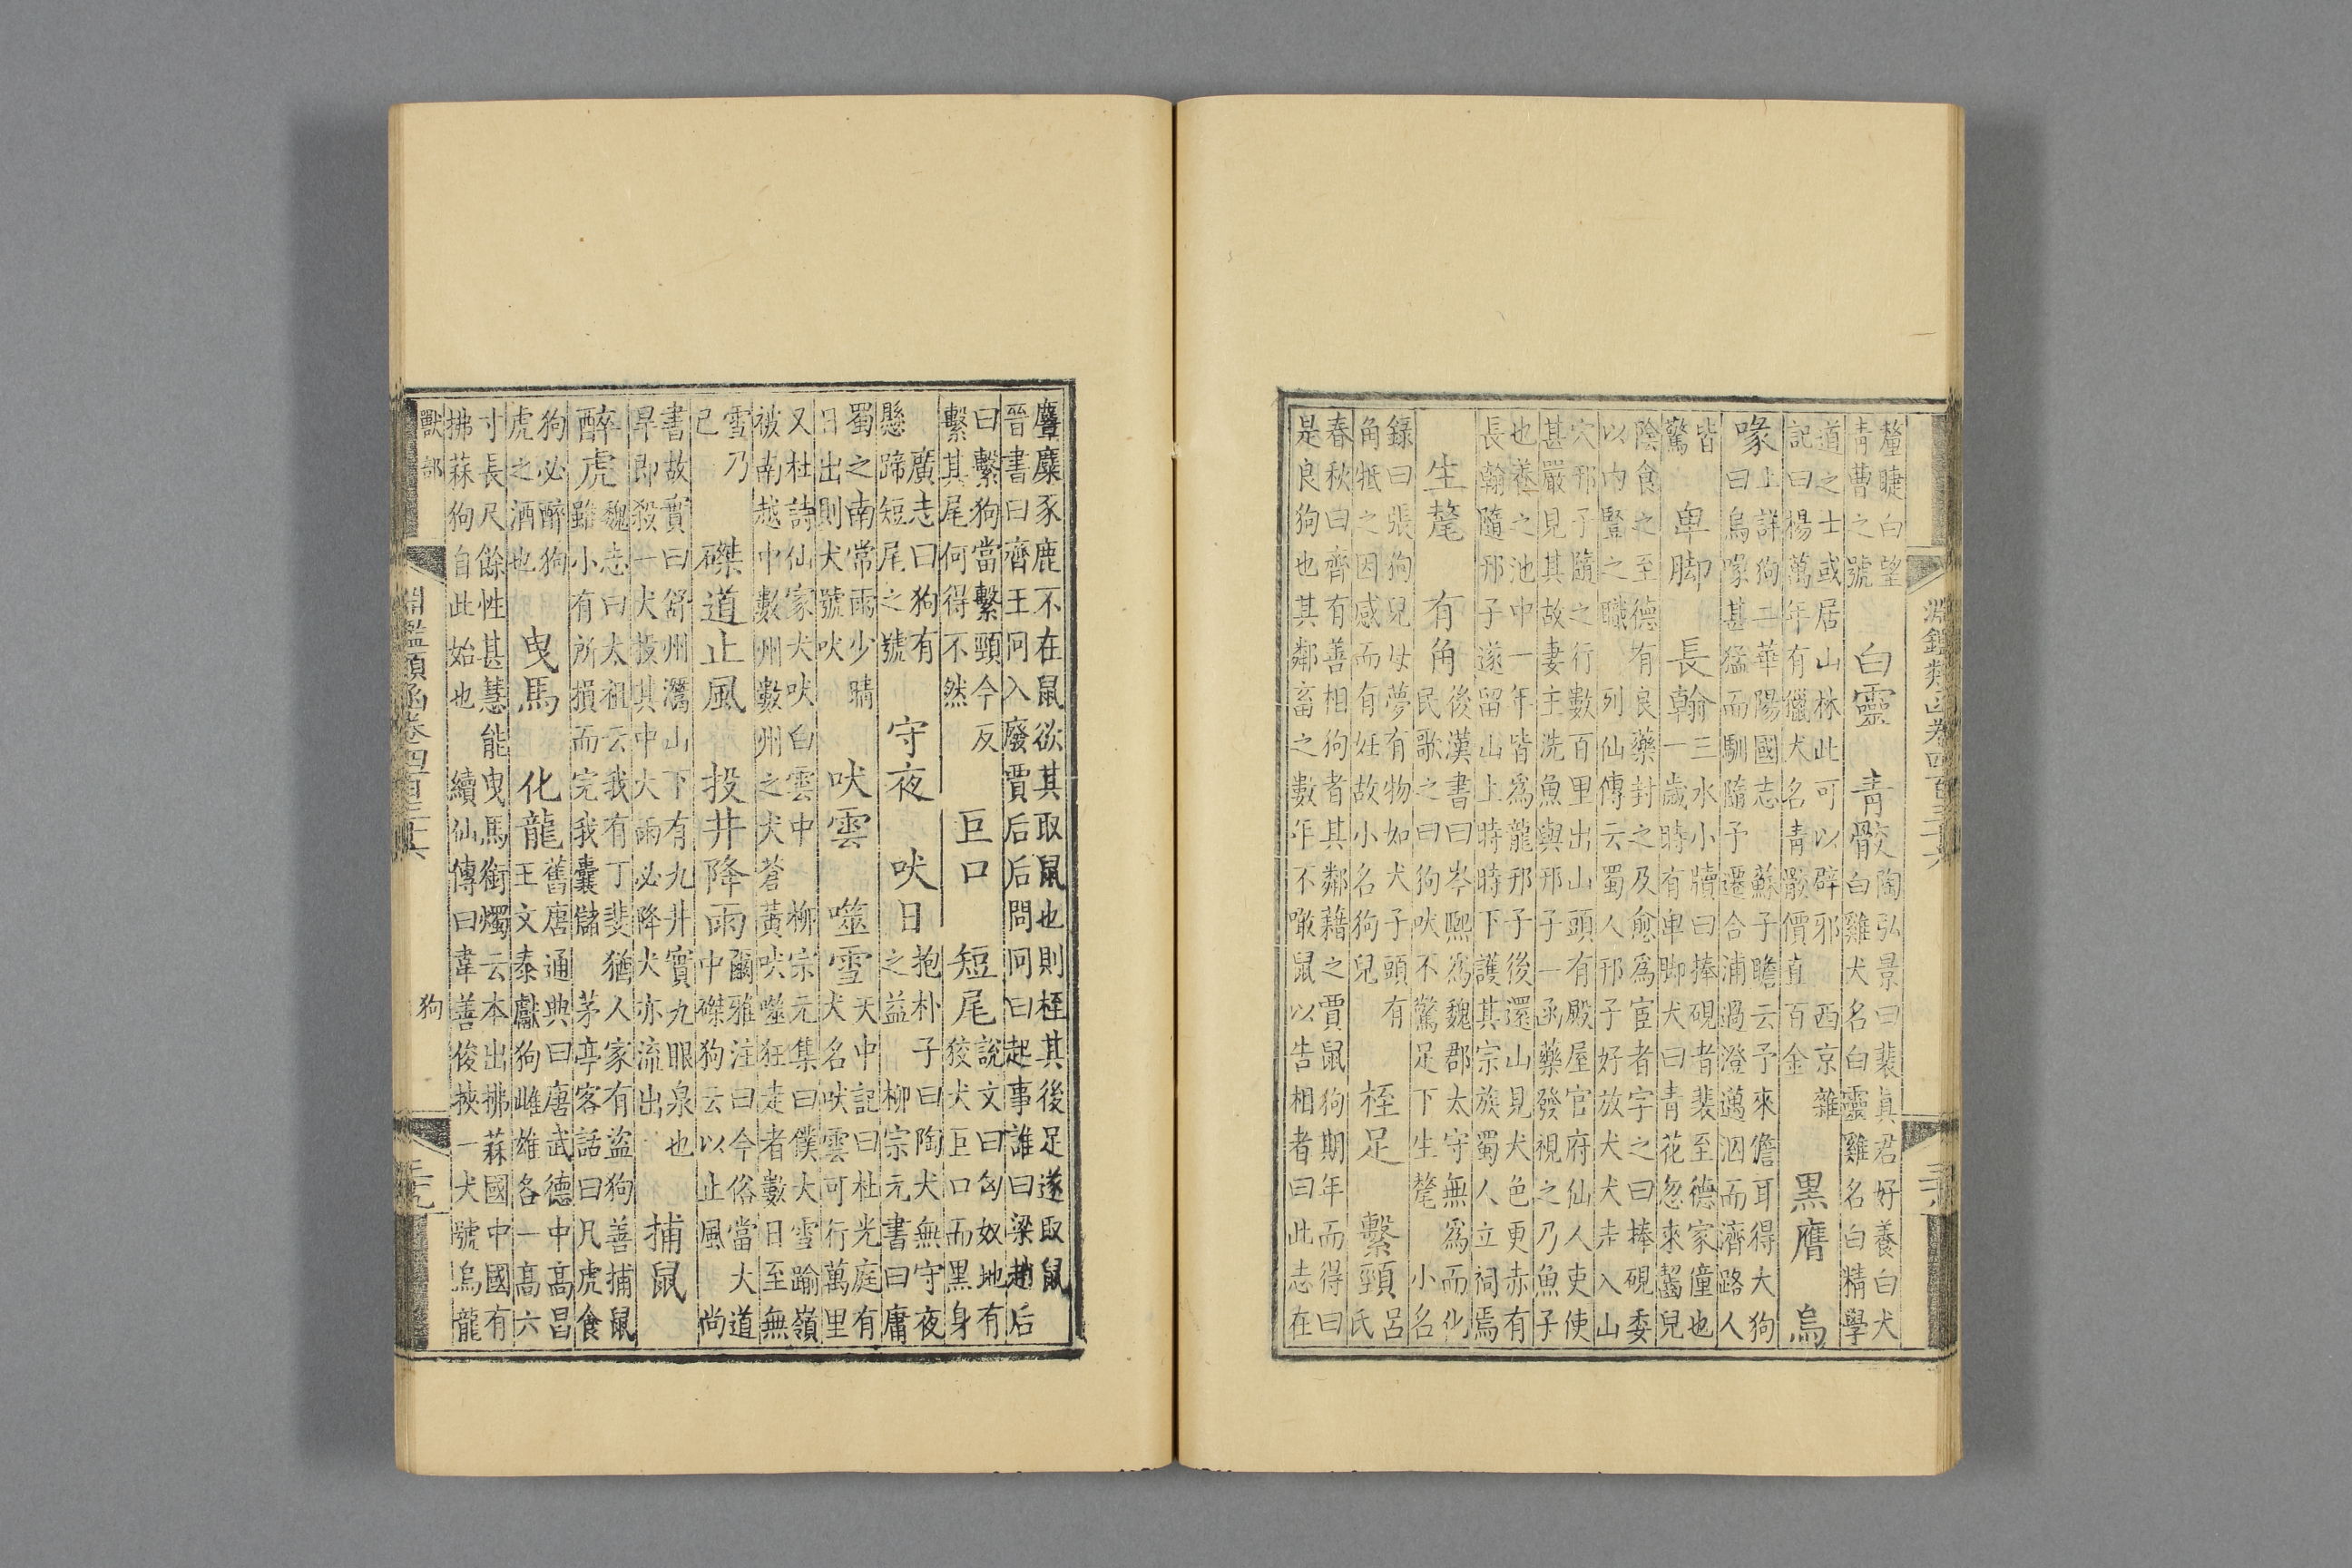 淵鑑類函卷四百三十六
釐睫白望
青曹之號
白靈 青骹
陶弘景曰裴真君好養白犬
白雞犬名白靈雞名白精學
道之士或居山林此可以辟邪 西京雜
記曰楊萬年有獵犬名青骹價直百金
黑膺 烏
喙
上詳狗二華陽國志 蘇子瞻云予來儋耳得大狗
曰烏喙甚猛而馴隨予遷合浦過澄邁泅而濟路人
皆
驚
卑脚 長翰
三水小牘曰捧硯者裴至德家僮也
一歲時有卑脚犬曰青花忽來齧兒
陰食之至德有良藥封之及愈爲宦者字之曰捧硯委
以内豎之職 列仙傳云蜀人邘子好放犬犬走入山
穴邘子隨之行數百里出山頭有殿屋官府仙人吏使
甚嚴見其故妻主洗魚與邘子一函藥發視之乃魚子
也養之池中一年皆爲龍邘子後還山見犬色更赤有
長翰隨邘子遂留山上時時下護其宗族蜀人立祠焉
生氂 有角
後漢書曰岑熙爲魏郡太守無爲而化
民歌之曰狗吠不驚足下生氂 小名
錄曰張狗兒母夢有物如犬子頭有
角牴之因感而有妊故小名狗兒
桎足 繫頸
呂
氏
春秋曰齊有善相狗者其鄰藉之賈鼠狗期年而得曰
是良狗也其鄰畜之數年不噉鼠以告相者曰此志在
麞麋豕鹿不在鼠欲其取鼠也則桎其後足遂取鼠
晉書曰齊王冏入廢賈后后問冏曰起事誰曰梁趙后
曰繫狗當繫頸今反
繫其尾何得不然
巨口 短尾
說文曰匈奴地有
狡犬巨口而黑身
廣志曰狗有
懸蹄短尾之號
守夜 吠日
抱朴子曰陶犬無守夜
之益 柳宗元書曰庸
蜀之南常雨少晴
日出則犬號吠
吠雲 噬雪
天中記曰杜光庭有
犬名吠雲可行萬里
又杜詩仙家犬吠白雲中 柳宗元集曰僕大雪踰嶺
被南越中數州數州之犬蒼黃吠噬狂走者數日至無
雪乃
已
磔道止風 投井降雨
爾雅注曰今俗當大道
中磔狗云以止風 尚
書故實曰舒州灊山下有九井實九眼泉也
旱即殺一犬投其中大雨必降犬亦流出
捕鼠
醉虎
魏志曰太祖云我有丁斐猶人家有盜狗善捕鼠
雖小有所損而完我囊儲 茅亭客話曰凡虎食
狗必醉狗
虎之酒也
曳馬 化龍
舊唐通典曰唐武德中高昌
王文泰獻狗雌雄各一高六
寸長尺餘性甚慧能曳馬銜燭云本出拂菻國中國有
拂菻狗自此始也 續仙傳曰韋善俊挾一犬號烏龍
獸部 狗
淵鑑類函卷四百三十六